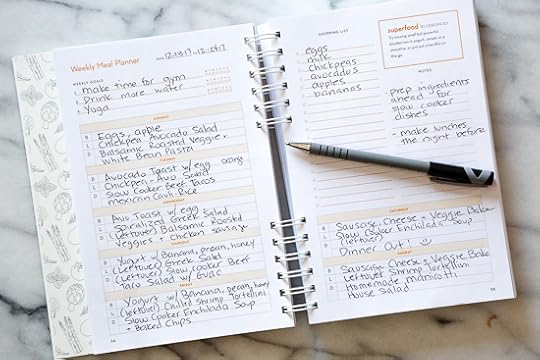 Weekly Meal Planner
DATE 12.10.17-12.16.17
WEEKLY GOALS
1. make time for gym
2. Drink more water
3. Yoga
MONDAY
B Eggs, apple
L Chickpea Avocado Salad
D Balsamic Roasted Veggie +
White Bean Pasta
TUESDAY
B Avocado Toast w/ egg
L Chickpea Avo Salad
D Slow Cooker Beef Tacos
mexican Cauli Rice
WEDNESDAY
B Avo Toast w/ egg
L Spiralized Greek Salad
D (Leftover) Balsamic Roastd
Veggies + Chicken sausage
THURSDAY
B Yogurt w/ Banana, pecan, honey
L (Leftover) Greek Salad
D (Leftover) Slow Cooker Beef
Taco Salad w/ Guac
FRIDAY
B Yogurt w/ Banana, pecan, honey
L (Leftover) Chilled Shrimp Tortellini
D Slow Cooker Enchilada Soup
+ Baked Chips
SHOPPING LIST
eggs
milk
chickpeas
avocados
apples
bananas
superfood BLUEBERRIES
NOTES
- Prep ingredients
ahead for
slow cooker
dishes
- make lunches
the night before
SATURDAY
B Sausage, Cheese + Veggie Bake
L Slow Cooker Enchilada Soup
(leftover)
D Dinner Out!
SUNDAY
B Sausage Cheese + Veggie Bake
L Leftover Shrimp Tortellini
D Homemade manicotti
House Salad